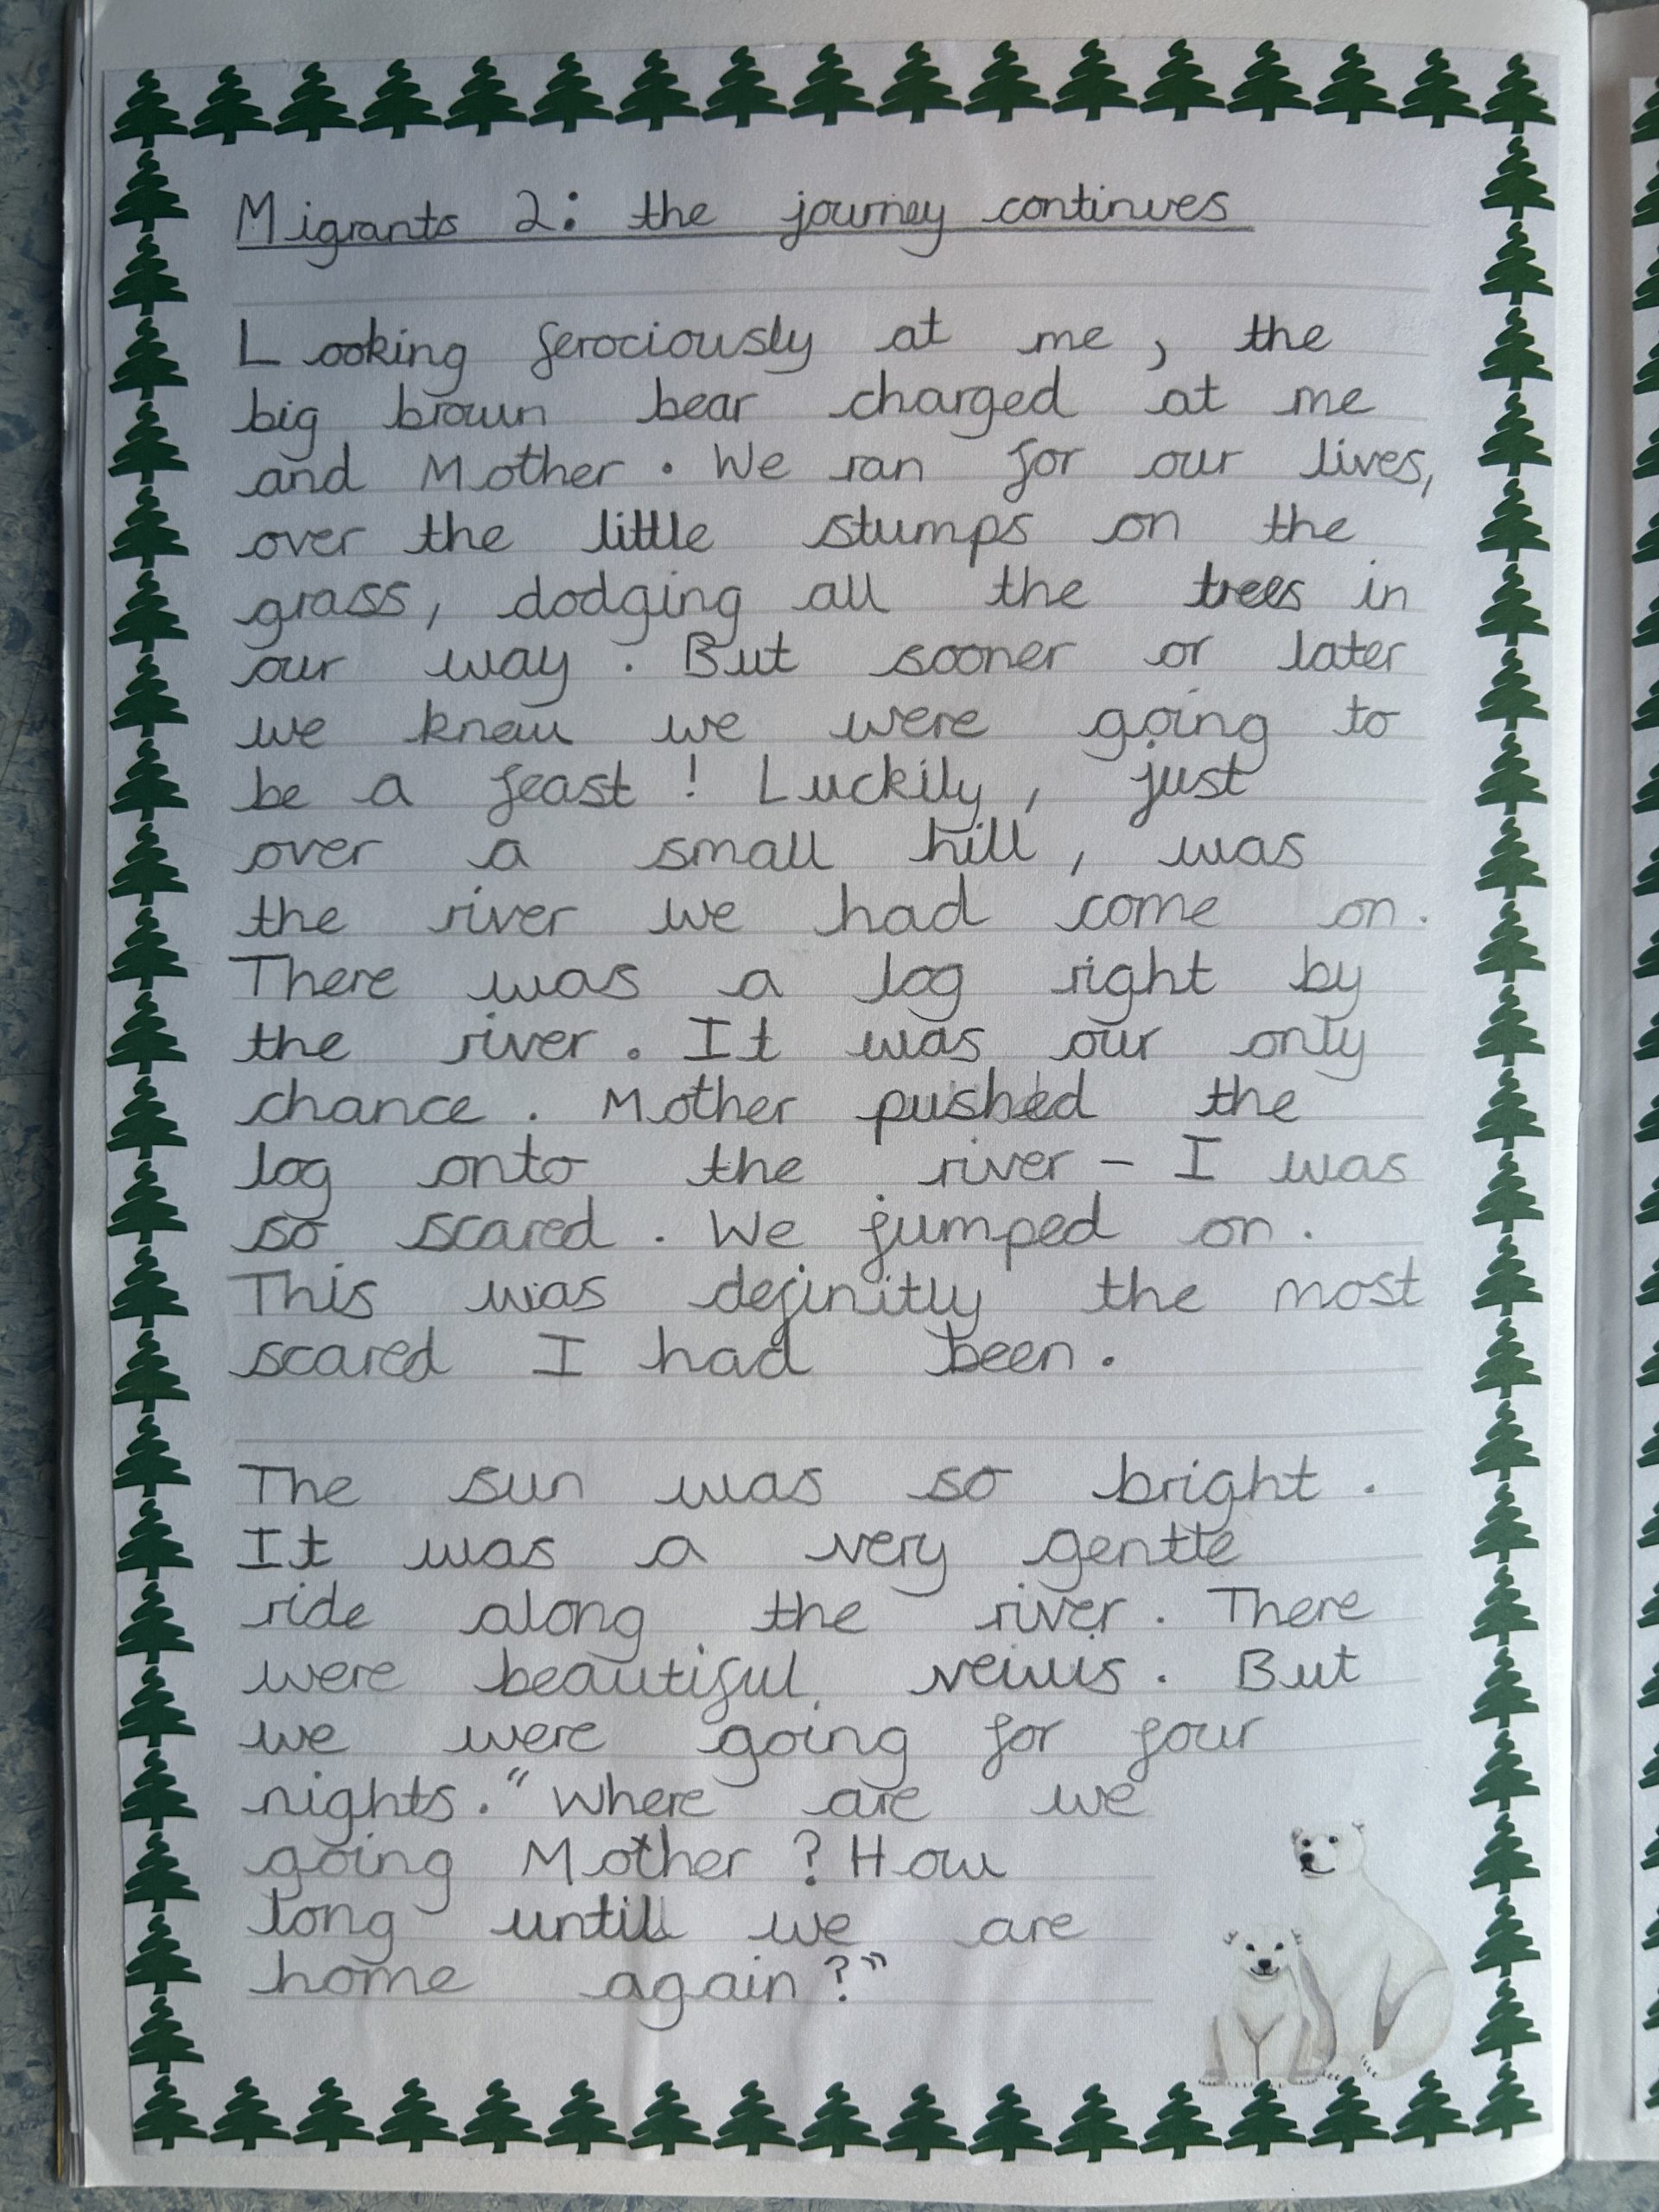 Migrants 2: the journey continues
Looking ferociously at me, the
big brown bear charged at me
and Mother. We ran for our lives,
over the little stumps on the
grass, dodging all the trees in
our way. But sooner or later
we knew we were going to
be a feast! Luckily, just
over a small hill, was
the river we had come on.
There was a log right by
the river. It was our only
chance. Mother pushed the
log onto the river - I was
so scared. We jumped on.
This was definitly the most
scared I had been.
The sun was so bright.
It was a very gentle
ride along the river. There
were beautiful veiws. But
we were going for four
nights. "Where are we
going Mother? How
long untill we are
home again?"